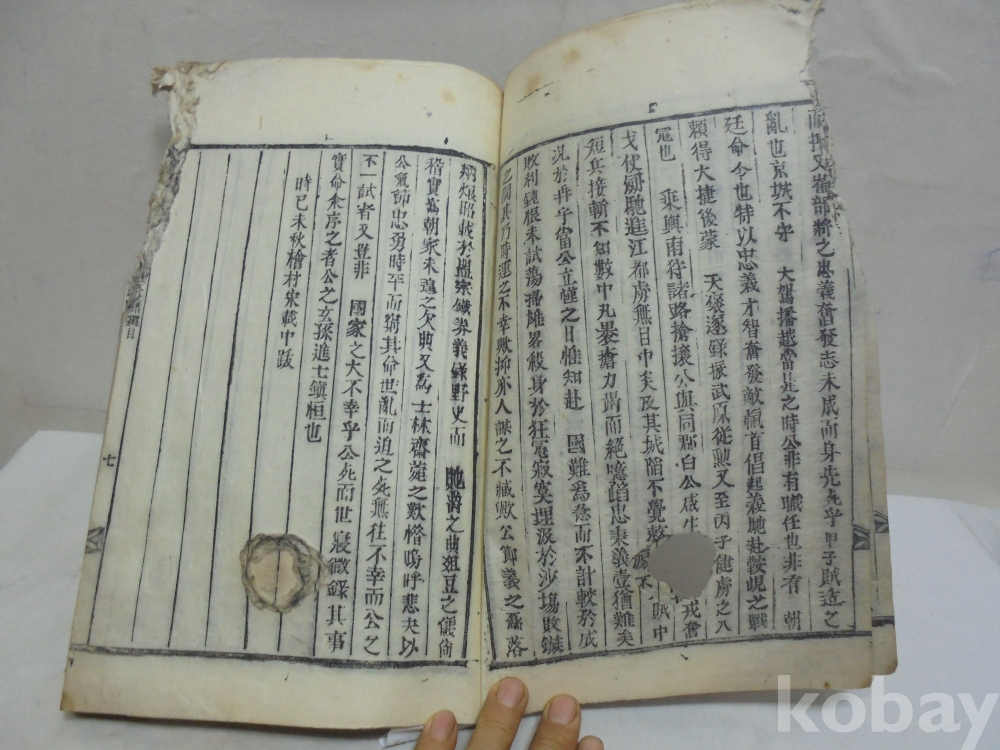 而扌又奮部將之忠義奮發志未成而身先死乎甲子賊适之
亂也京城不守 大駕播越當是之時公非有職任也非有 朝
廷命令也特以忠義才智奮發敵愾首倡起義馳赴鞍峴之戰
賴得大捷後蒙 天褒遂錄振武原從勳又至丙子健虜之入
寇也 乘輿南狩諸路搶攘公與同郡白公
戈仗劒馳進江都虜無日中矣及其城陷不覺 賊中
短兵接斬不知數中丸裹瘡力盡而絕噫蹈忠秉義壹猶難矣
況於再乎當公立慬之日惟知赴 國難爲急而不計較於成
敗利鈍恨未試蕩掃雄畧殺身於狂寇寂寞埋沒於沙塲敗鏃
之間其乃時運之不幸歟抑亦人謀之不臧歟公御義之磊落
炳烺昭載於盟宗鐵券義錄野史而 貤爵之典俎豆之儀尙
稽實爲朝家未遑之欠典又爲士林齋菀之歎憯嗚呼悲夫以
公氣節忠勇時平而窮其命世亂而迫之死無往不幸而公之
不一試者又豈非 國家之大不幸乎公死而世寖微錄其事
實命余序之者公之玄孫進士鎭恒也
時己未秋檜村宋載中跋
七
kobay